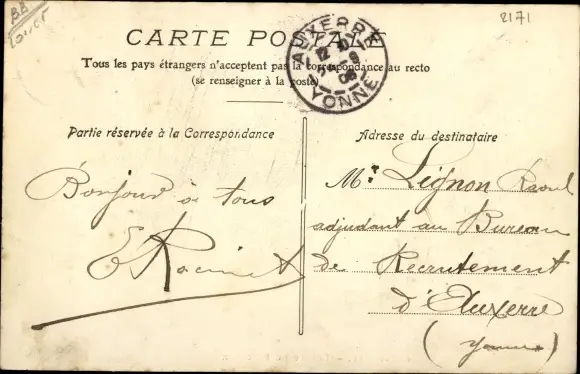 2171
CARTE POSTALE
Tous les pays étrangers n'acceptent pas la correspondance au recto
(se renseigner à la poste)
AUXERRE
YONNE
Partie réservée à la Correspondance
Bonjour à tous
E Racinet
Adresse du destinataire
Mr Lignon Raoul
adjudant au Bureau
de Recrutement
d'Auxerre
(Yonne)